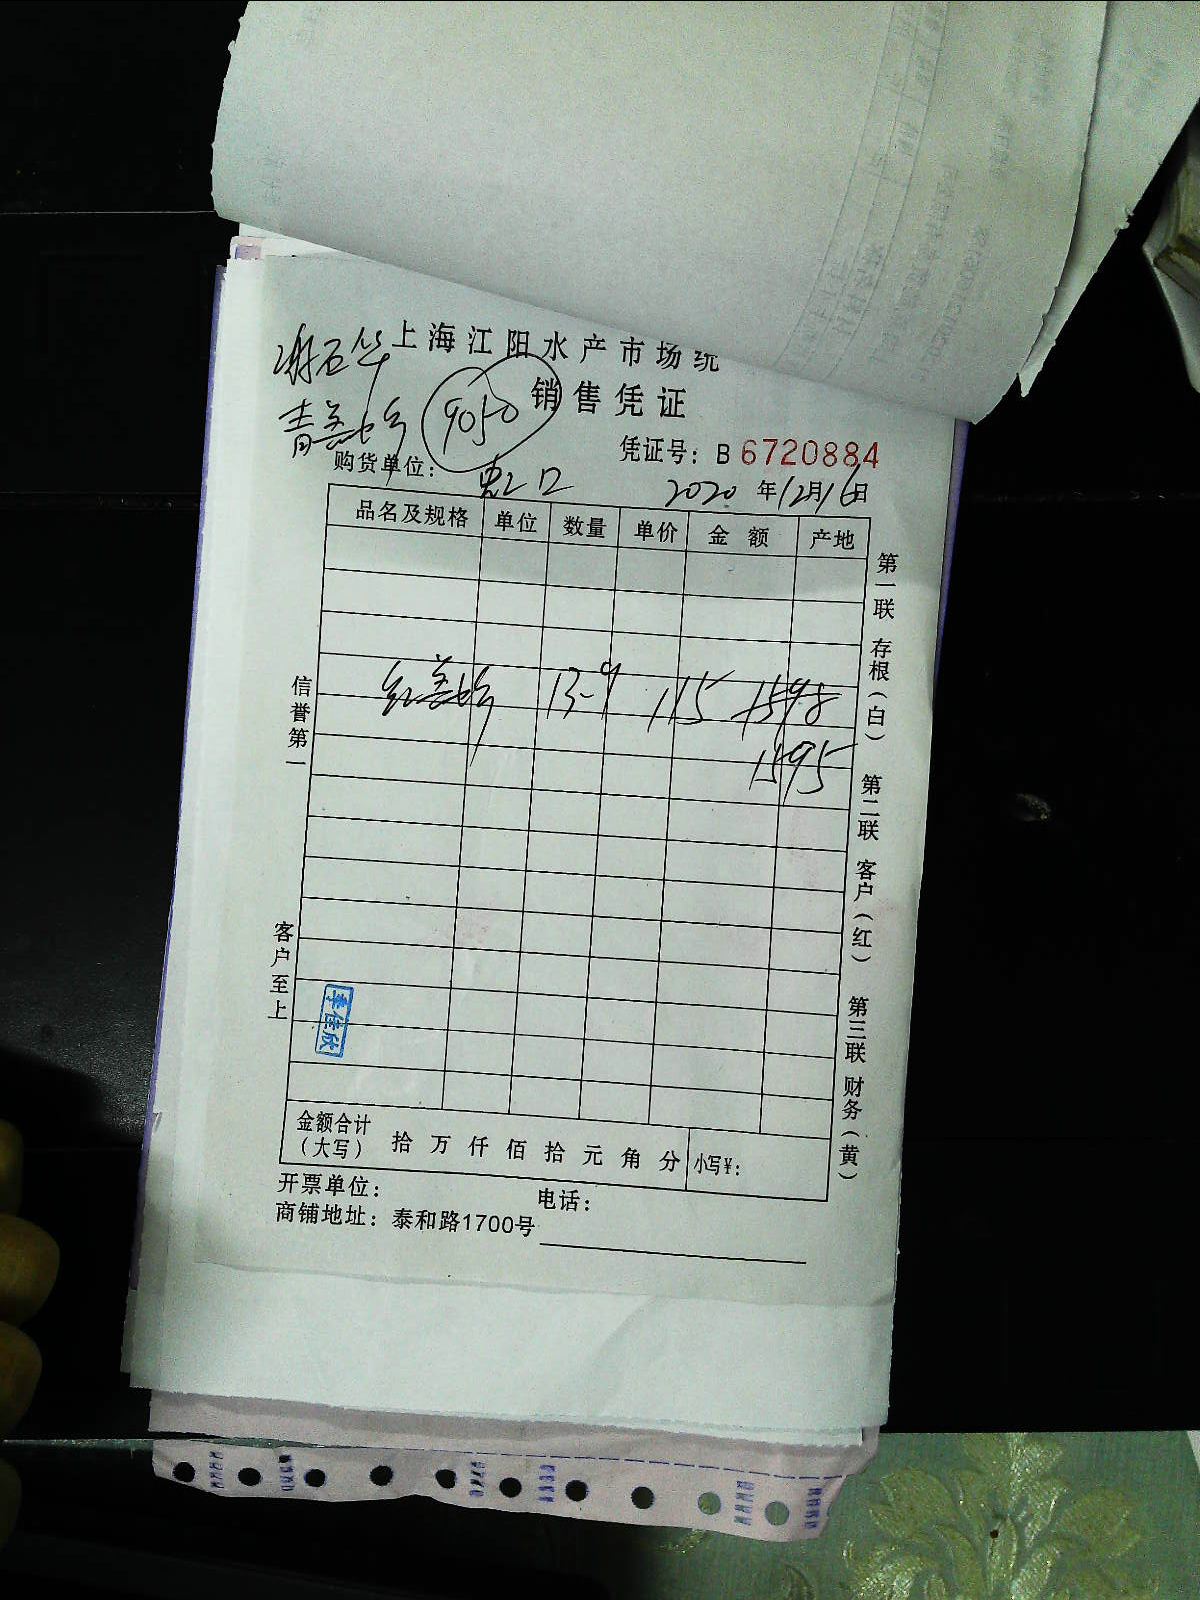 上海江阳水产市场统
销售凭证
9050
凭证号：B 6720884
购货单位：虹口 2020年12月16日
品名及规格 单位 数量 单价 金额 产地
13-9 115 1598
1595
信誉第一
客户至上
第一联 存根（白） 第二联 客户（红） 第三联 财务（黄）
李佳欣
金额合计（大写） 拾 万 仟 佰 拾 元 角 分 小写¥：
开票单位： 电话：
商铺地址：泰和路1700号